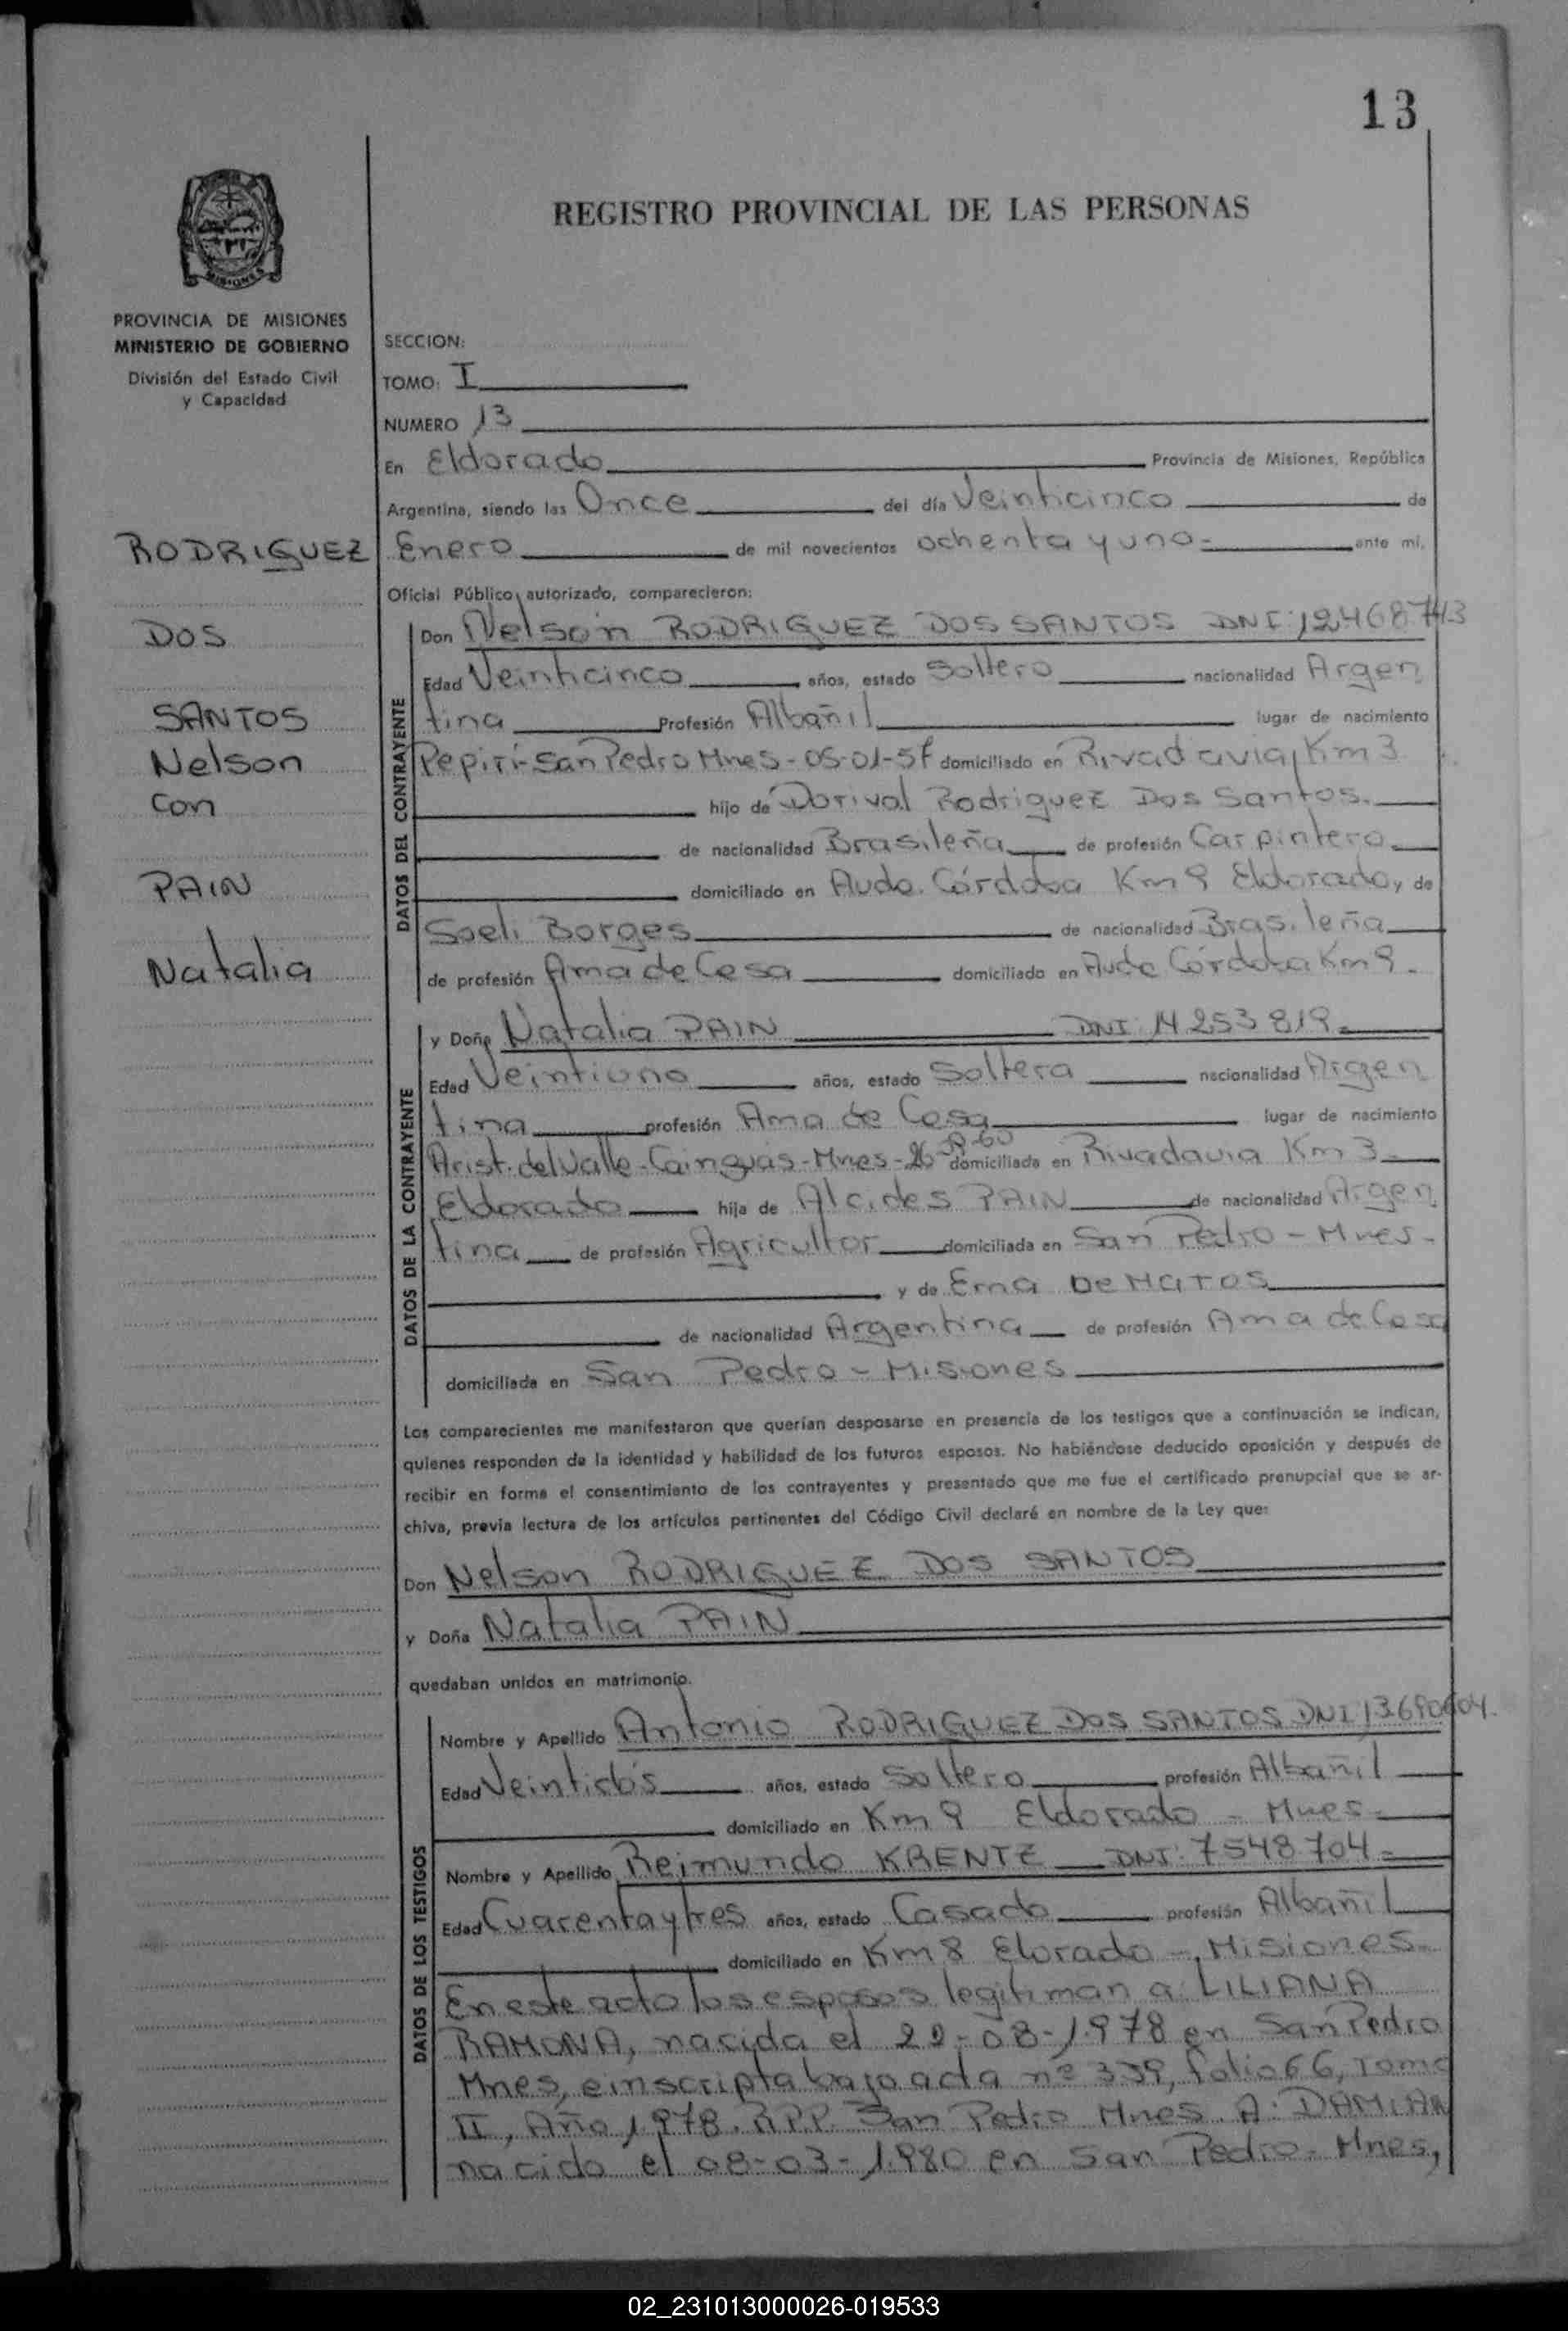 13
REGISTRO PROVINCIAL DE LAS PERSONAS
MISIONES
PROVINCIA DE MISIONES
MINISTERIO DE GOBIERNO
División del Estado Civil
y Capacidad
RODRIGUEZ
DOS
SANTOS
Nelson
con
PAIN
Natalia
SECCION:
TOMO: I
NUMERO 13
En Eldorado Provincia de Misiones, República
Argentina, siendo las Once del día Veinticinco de
Enero de mil novecientos ochenta y uno= ante mí,
Oficial Público autorizado, comparecieron:
DATOS DEL CONTRAYENTE
Don Nelson RODRIGUEZ DOS SANTOS DNI: 12468743
Edad Veinticinco años, estado Soltero nacionalidad Argen
tina Profesión Albañil lugar de nacimiento
Pepirí-San Pedro Mnes-05-01-57 domiciliado en Rivadavia, Km 3
hijo de Dorival Rodriguez Dos Santos.
de nacionalidad Brasileña de profesión Carpintero
domiciliado en Avda. Córdoba Km 9 Eldorado, y de
Soeli Borges de nacionalidad Brasileña
de profesión Ama de Casa domiciliado en Avda Córdoba Km 9.
DATOS DE LA CONTRAYENTE
y Doña Natalia PAIN DNI: 14.253.819=
Edad Veintiuno años, estado Soltera nacionalidad Argen
tina profesión Ama de Casa lugar de nacimiento
Arist. del Valle-Cainguas-Mnes-26- -60 domiciliada en Rivadavia Km 3
Eldorado hija de Alcides PAIN de nacionalidad Argen
tina de profesión Agricultor domiciliada en San Pedro - Mnes-
y de Erna DE MATOS
de nacionalidad Argentina de profesión Ama de Casa
domiciliada en San Pedro - Misiones
Los comparecientes me manifestaron que querían desposarse en presencia de los testigos que a continuación se indican,
quienes responden de la identidad y habilidad de los futuros esposos. No habiéndose deducido oposición y después de
recibir en forma el consentimiento de los contrayentes y presentado que me fue el certificado prenupcial que se ar-
chiva, previa lectura de los artículos pertinentes del Código Civil declaré en nombre de la Ley que:
Don Nelson RODRIGUEZ DOS SANTOS
y Doña Natalia PAIN
quedaban unidos en matrimonio.
DATOS DE LOS TESTIGOS
Nombre y Apellido Antonio RODRIGUEZ DOS SANTOS DNI
Edad Veintidós años, estado Soltero profesión Albañil
domiciliado en Km 9 Eldorado - Mnes-
Nombre y Apellido Reimundo KRENTZ DNI: 7548704=
Edad Cuarenta y tres años, estado Casado profesión Albañil
domiciliado en Km 8 Elorado - Misiones-
En este acto los esposos legitiman a: LILIANA
RAMONA, nacida el -08-1978 en San Pedro
Mnes, e inscripta bajo acta nº 339, folio 66, Tomo
II, Año 1978. R.P.P. San Pedro Mnes. A: DAMIAN
nacido el 08-03-1980 en San Pedro-Mnes,
02_231013000026-019533